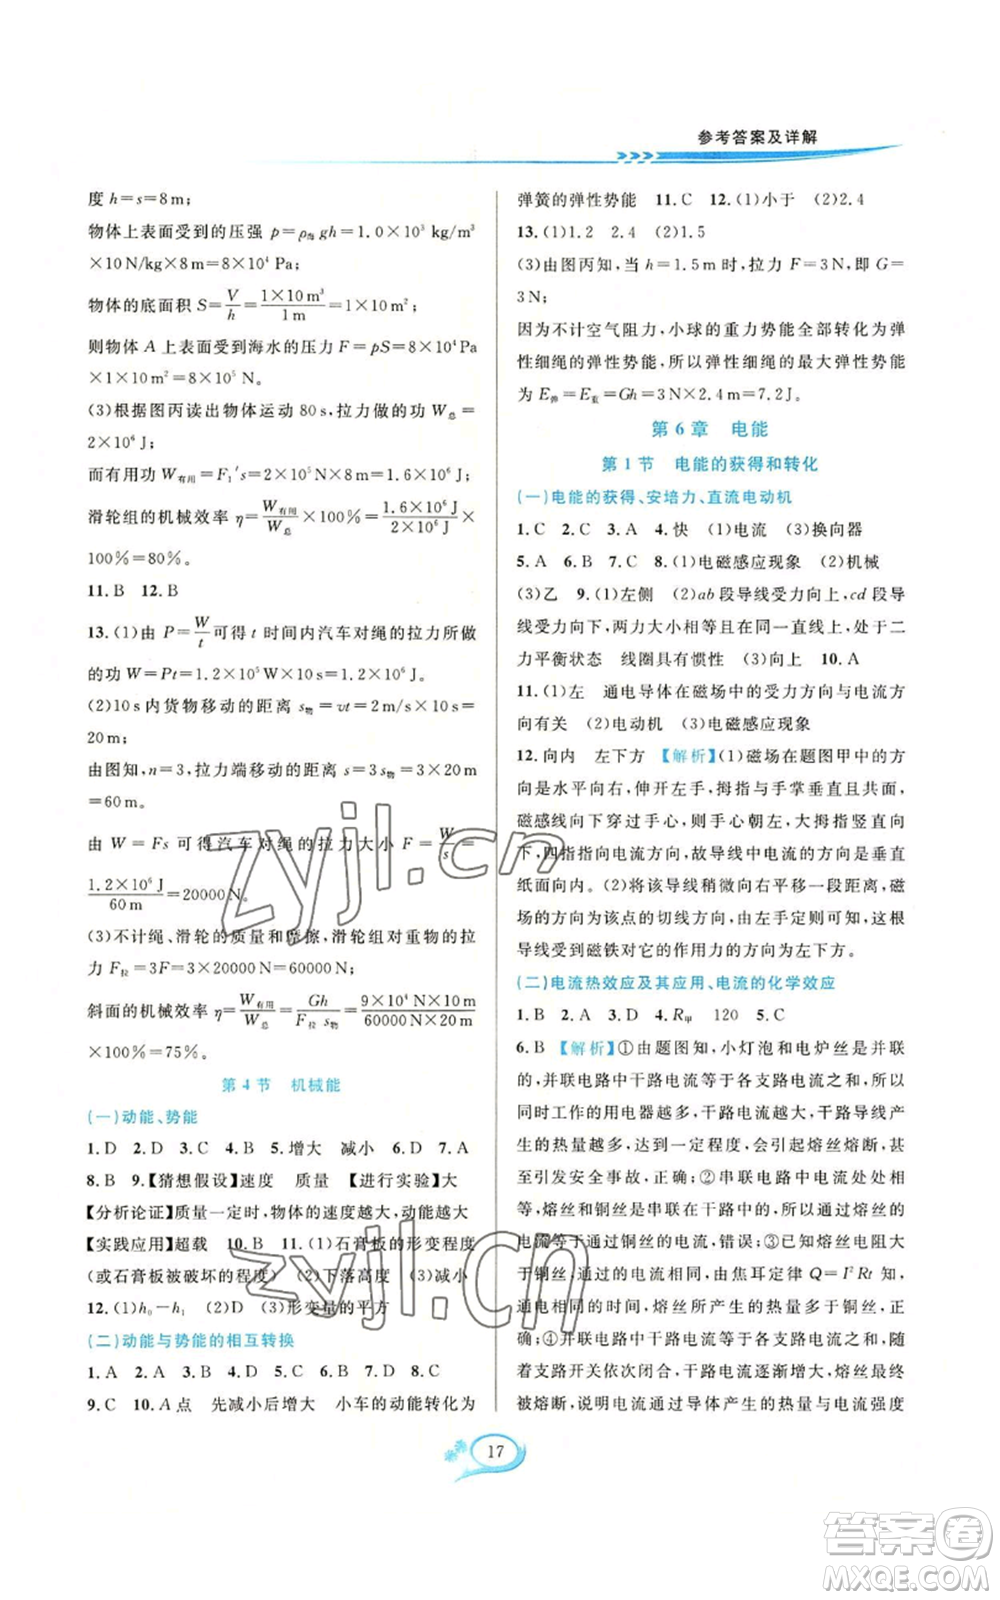 参考答案及详解
度 h=s=8 m;
物体上表面受到的压强 p=ρ海gh=1.0×10³ kg/m³
×10 N/kg×8 m=8×10⁴ Pa;
物体的底面积 S=V/h=1×10 m³/1 m=1×10 m²;
则物体 A 上表面受到海水的压力 F=pS=8×10⁴ Pa
×1×10 m²=8×10⁵ N。
(3)根据图丙读出物体运动 80 s,拉力做的功 W总=
2×10⁶ J;
而有用功 W有用=F₁′s=2×10⁵ N×8 m=1.6×10⁶ J
滑轮组的机械效率 η=W有用/W总×100%=1.6×10⁶ J/2×10⁶ J×
100%=80%。
11.B 12.B
13.(1)由 P=W/t可得 t 时间内汽车对绳的拉力所做
的功 W=Pt=1.2×10⁵ W×10 s=1.2×10⁶ J。
(2)10 s 内货物移动的距离 s物=vt=2 m/s×10 s=
20 m;
由图知,n=3,拉力端移动的距离 s=3s物=3×20 m
=60 m。
由 W=Fs 可得汽车对绳的拉力大小 F=W/s=
1.2×10⁶ J/60 m=20000 N。
(3)不计绳、滑轮的质量和摩擦,滑轮组对重物的拉
力 F拉=3F=3×20000 N=60000 N;
斜面的机械效率 η=W有用/W总=Gh/F拉 s物=9×10⁴ N×10 m/60000 N×20 m
×100%=75%。
第 4 节 机械能
(一)动能、势能
1.D 2.D 3.C 4.B 5.增大 减小 6.D 7.A
8.B 9.【猜想假设】速度 质量 【进行实验】大
【分析论证】质量一定时,物体的速度越大,动能越大
【实践应用】超载 10.B 11.(1)石膏板的形变程度
(或石膏板被破坏的程度) (2)下落高度 (3)减小
12.(1)h₀-h₁ (2)D (3)形变量的平方
(二)动能与势能的相互转换
1.A 2.A 3.A 4.B 5.B 6.D 7.D 8.C
9.C 10.A点 先减小后增大 小车的动能转化为
弹簧的弹性势能 11.C 12.(1)小于 (2)2.4
13.(1)1.2 2.4 (2)1.5
(3)由图丙知,当 h=1.5 m 时,拉力 F=3 N,即 G=
3 N;
因为不计空气阻力,小球的重力势能全部转化为弹
性细绳的弹性势能,所以弹性细绳的最大弹性势能
为 E弹=E重=Gh=3 N×2.4 m=7.2 J。
第 6 章 电能
第 1 节 电能的获得和转化
(一)电能的获得、安培力、直流电动机
1.C 2.C 3.A 4.快 (1)电流 (3)换向器
5.A 6.B 7.C 8.(1)电磁感应现象 (2)机械
(3)乙 9.(1)左侧 (2)ab 段导线受力向上,cd 段
导线受力向下,两力大小相等且在同一直线上,处于二
力平衡状态 线圈具有惯性 (3)向上 10.A
11.(1)左 通电导体在磁场中的受力方向与电流方
向有关 (2)电动机 (3)电磁感应现象
12.向内 左下方 【解析】(1)磁场在题图甲中的方
向是水平向右,伸开左手,拇指与手掌垂直,使
磁感线向下穿过手心,则手心朝左,大拇指竖直向
下,四指指向电流方向,故导线中电流方向是垂直
纸面向内。(2)将该导线稍微向右平移一点,磁
场的方向为该点的切线方向,由左手定则可知,这根
导线受到磁铁对它的作用力的方向为左下方。
(二)电流热效应及其应用、电流的化学效应
1.B 2.A 3.D 4.R甲 120 5.C
6.B 【解析】①由题图知,小灯泡和电炉丝是并联
的,并联电路中干路电流等于各支路电流之和,所以
同时工作的用电器越多,干路电流越大,干路导线产
生的热量越多,达到一定程度,会引起熔丝熔断,甚
至引发安全事故,正确;②串联电路中电流处处相
等,熔丝和铜丝是串联在电路中的,所以通过熔丝的
电流等于通过铜丝的电流,错误;③已知熔丝电阻大
于铜丝,通过的电流相同,由焦耳定律 Q=I²Rt 知,
通电相同时间,熔丝所产生的热量多于铜丝,正
确;④并联电路中干路电流等于各支路电流之和,随
着支路开关依次闭合,干路电流逐渐增大,熔丝最终
被熔断,说明电流通过导体产生的热量与电流强度
17
zyjl.cn
zyjl.cn
答案卷
MXQE.COM